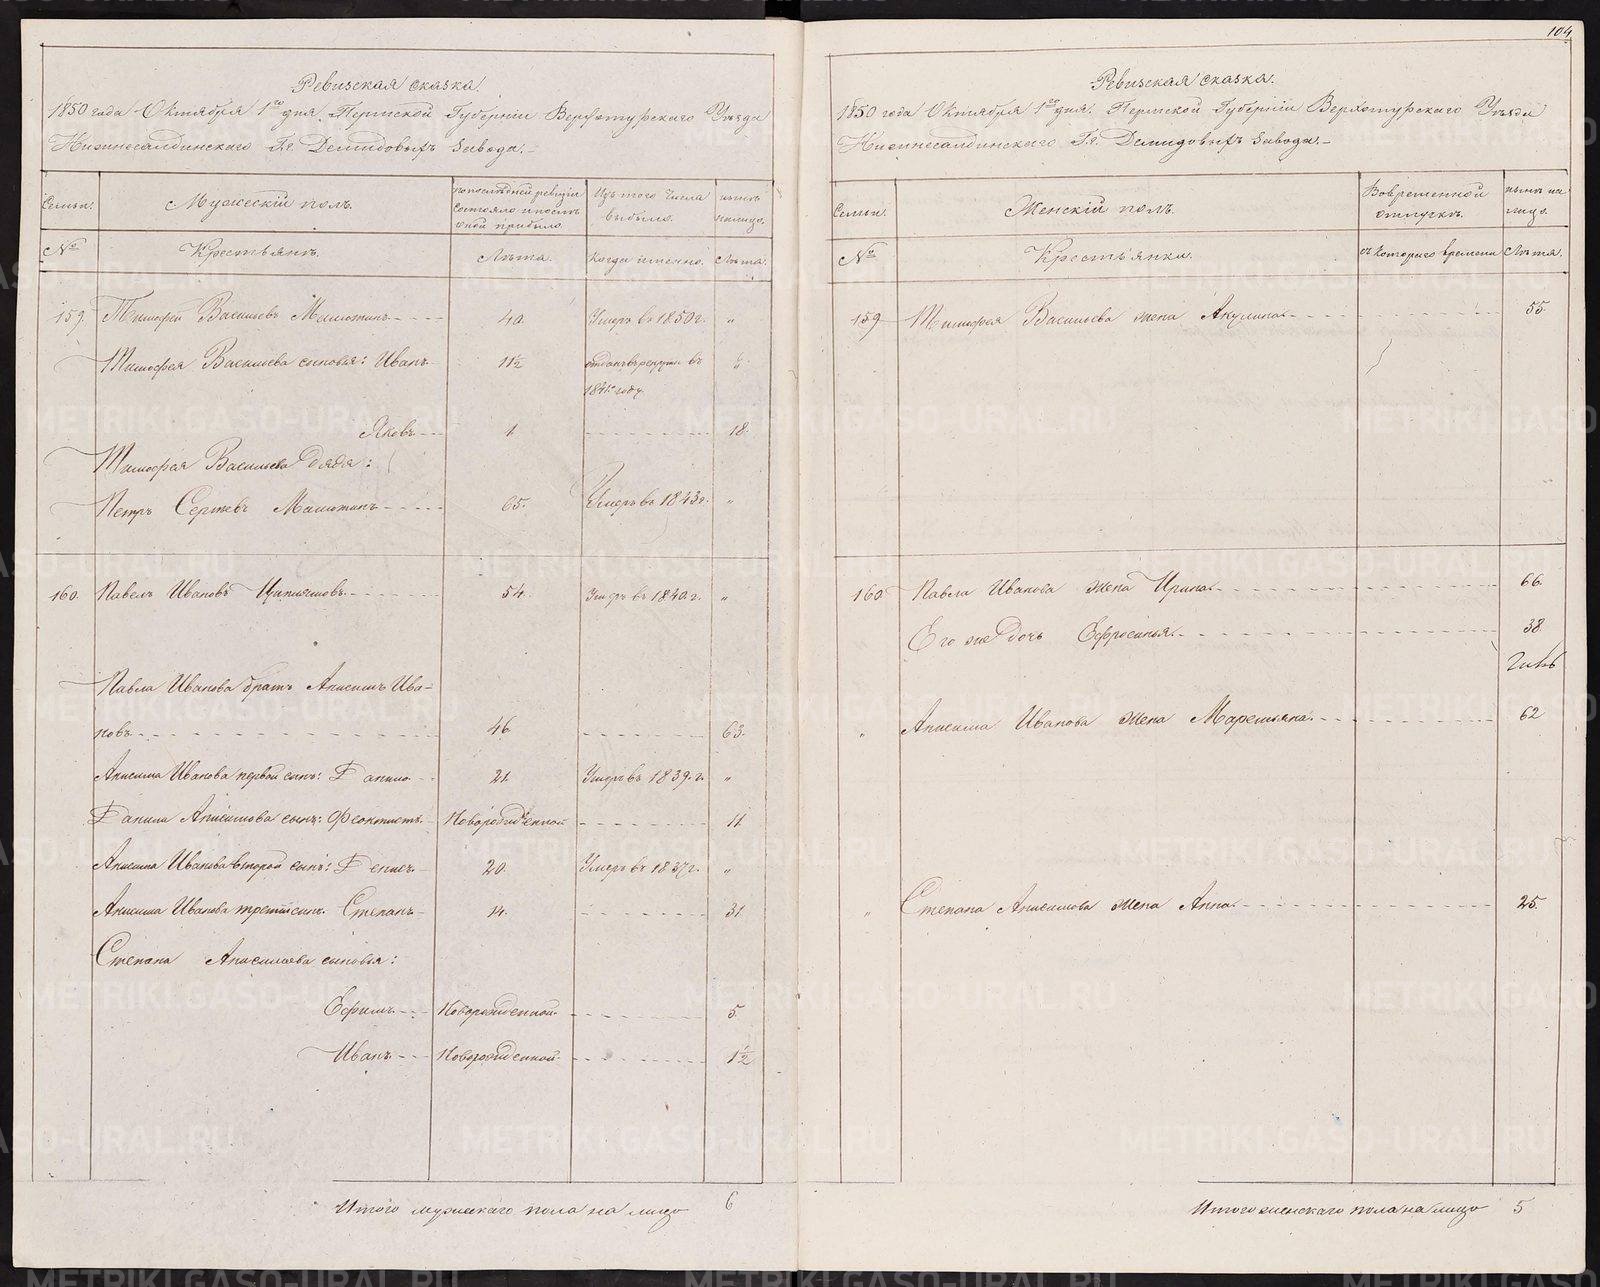 104
Ревизская сказка.
1850 года Октября 1го дня. Пермской Губернии Верхотурскаго Уѣзда
Нижнесалдинскаго Г.г. Демидовыхъ Завода.
Семьи. Мужескій полъ. по последней ревизіи состояло и послѣ оной прибыло. Изъ того числа выбыло. нынѣ на лицо.
№ Крестьянъ. Лѣта. когда именно. Лѣта.
159. Тимофей Васильевъ 40. Умеръ въ 1850 г. "
Тимофея Васильева сыновья: Иванъ 11½ отданъ въ рекруты въ "
1841м году.
Яковъ 1. 18.
Тимофея Васильева дядя:
Петръ Сергѣевъ 65. Умеръ въ 1843 г. "
160. Павелъ Ивановъ 54. Умеръ въ 1840. г. "
Павла Иванова братъ Анисимъ Ива-
новъ 46. 63.
Анисима Иванова первой сынъ: Данило 21. Умеръ въ 1839. г. "
Данила Анисимова сынъ: Феоктистъ. Новорожденной 11.
Анисима Иванова второй сынъ: Денисъ. 20. Умеръ въ 1837 г. "
Анисима Иванова третій сынъ. Степанъ 14. 31.
Степана Анисимова сыновья:
Ефимъ Новорожденной. 5.
Иванъ Новорожденной. 1½
Итого мужескаго пола на лицо 6
Ревизская сказка.
1850 года Октября 1го дня. Пермской Губерніи Верхотурскаго Уѣзда
Нижнесалдинскаго Г.г. Демидовыхъ Завода.
Семьи. Женскій полъ. Во временной отлучкѣ. нынѣ на лицо.
№ Крестьянки. съ котораго времени Лѣта.
159 Тимофея Васильева жена Акулина. 55.
160 Павла Иванова жена Ирина. 66.
Его же дочь Ефросинья. 38.
" Анисима Иванова жена Маремьяна. 62
" Степана Анисимова жена Анна. 25.
Итого женскаго пола на лицо 5
METRIKI.GASO-URAL.RU